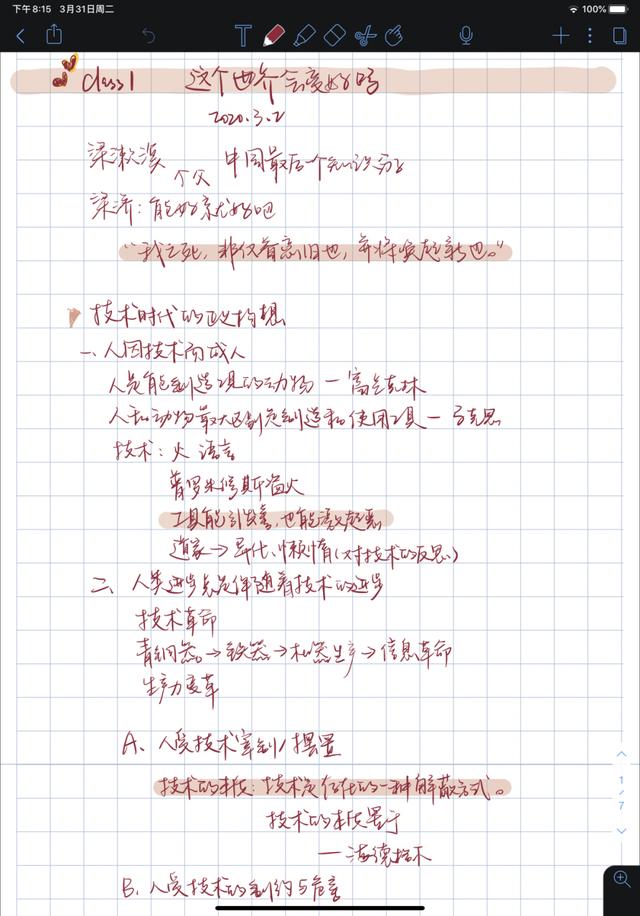 下午8:15 3月31日周二 100%
Class 1 这个世界会变好吗
2020.3.2
梁漱溟 中国最后一个知识分子
个父
梁济：能好就好吧
“我之死，非仅眷恋旧也，并将唤起新也。”
技术时代的正义构想
一、人因技术而成人
人是能制造工具的动物 — 富兰克林
人和动物最大区别是制造和使用工具 — 马克思
技术：火 语言
普罗米修斯盗火
工具能引发善，也能诱发起恶
道家→异化、懒惰（对技术的反思）
二、人类进步总是伴随着技术的进步
技术革命
青铜器→铁器→机器生产→信息革命
生产力变革
A、人受技术宰制/摆置
技术的本质：技术是存在的一种解蔽方式。
技术的本质居于
—海德格尔
B、人受技术的制约与危害
1/7